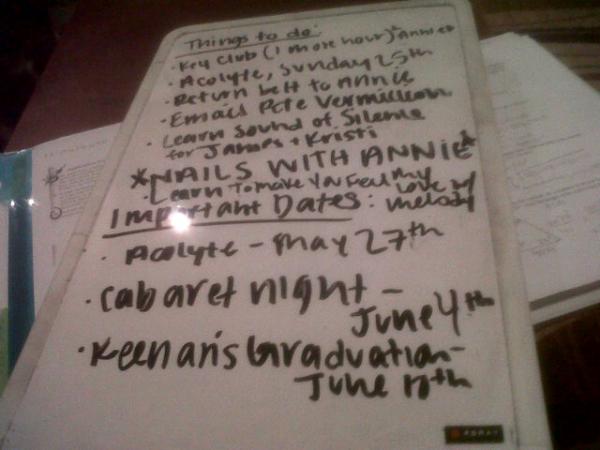 Things to do:
· Key Club (1 more hour)
· Acolyte, Sunday 25th
· Return belt to Annie
· Email Pete Vermilleon
· Learn Sound of Silence
for James + Kristi
*NAILS WITH ANNIE*
· Learn To make You Feel My
Love w/
melody
Important Dates:
· Acolyte - May 27th
· Cabaret night -
June 4th
· Keenan's Graduation -
June